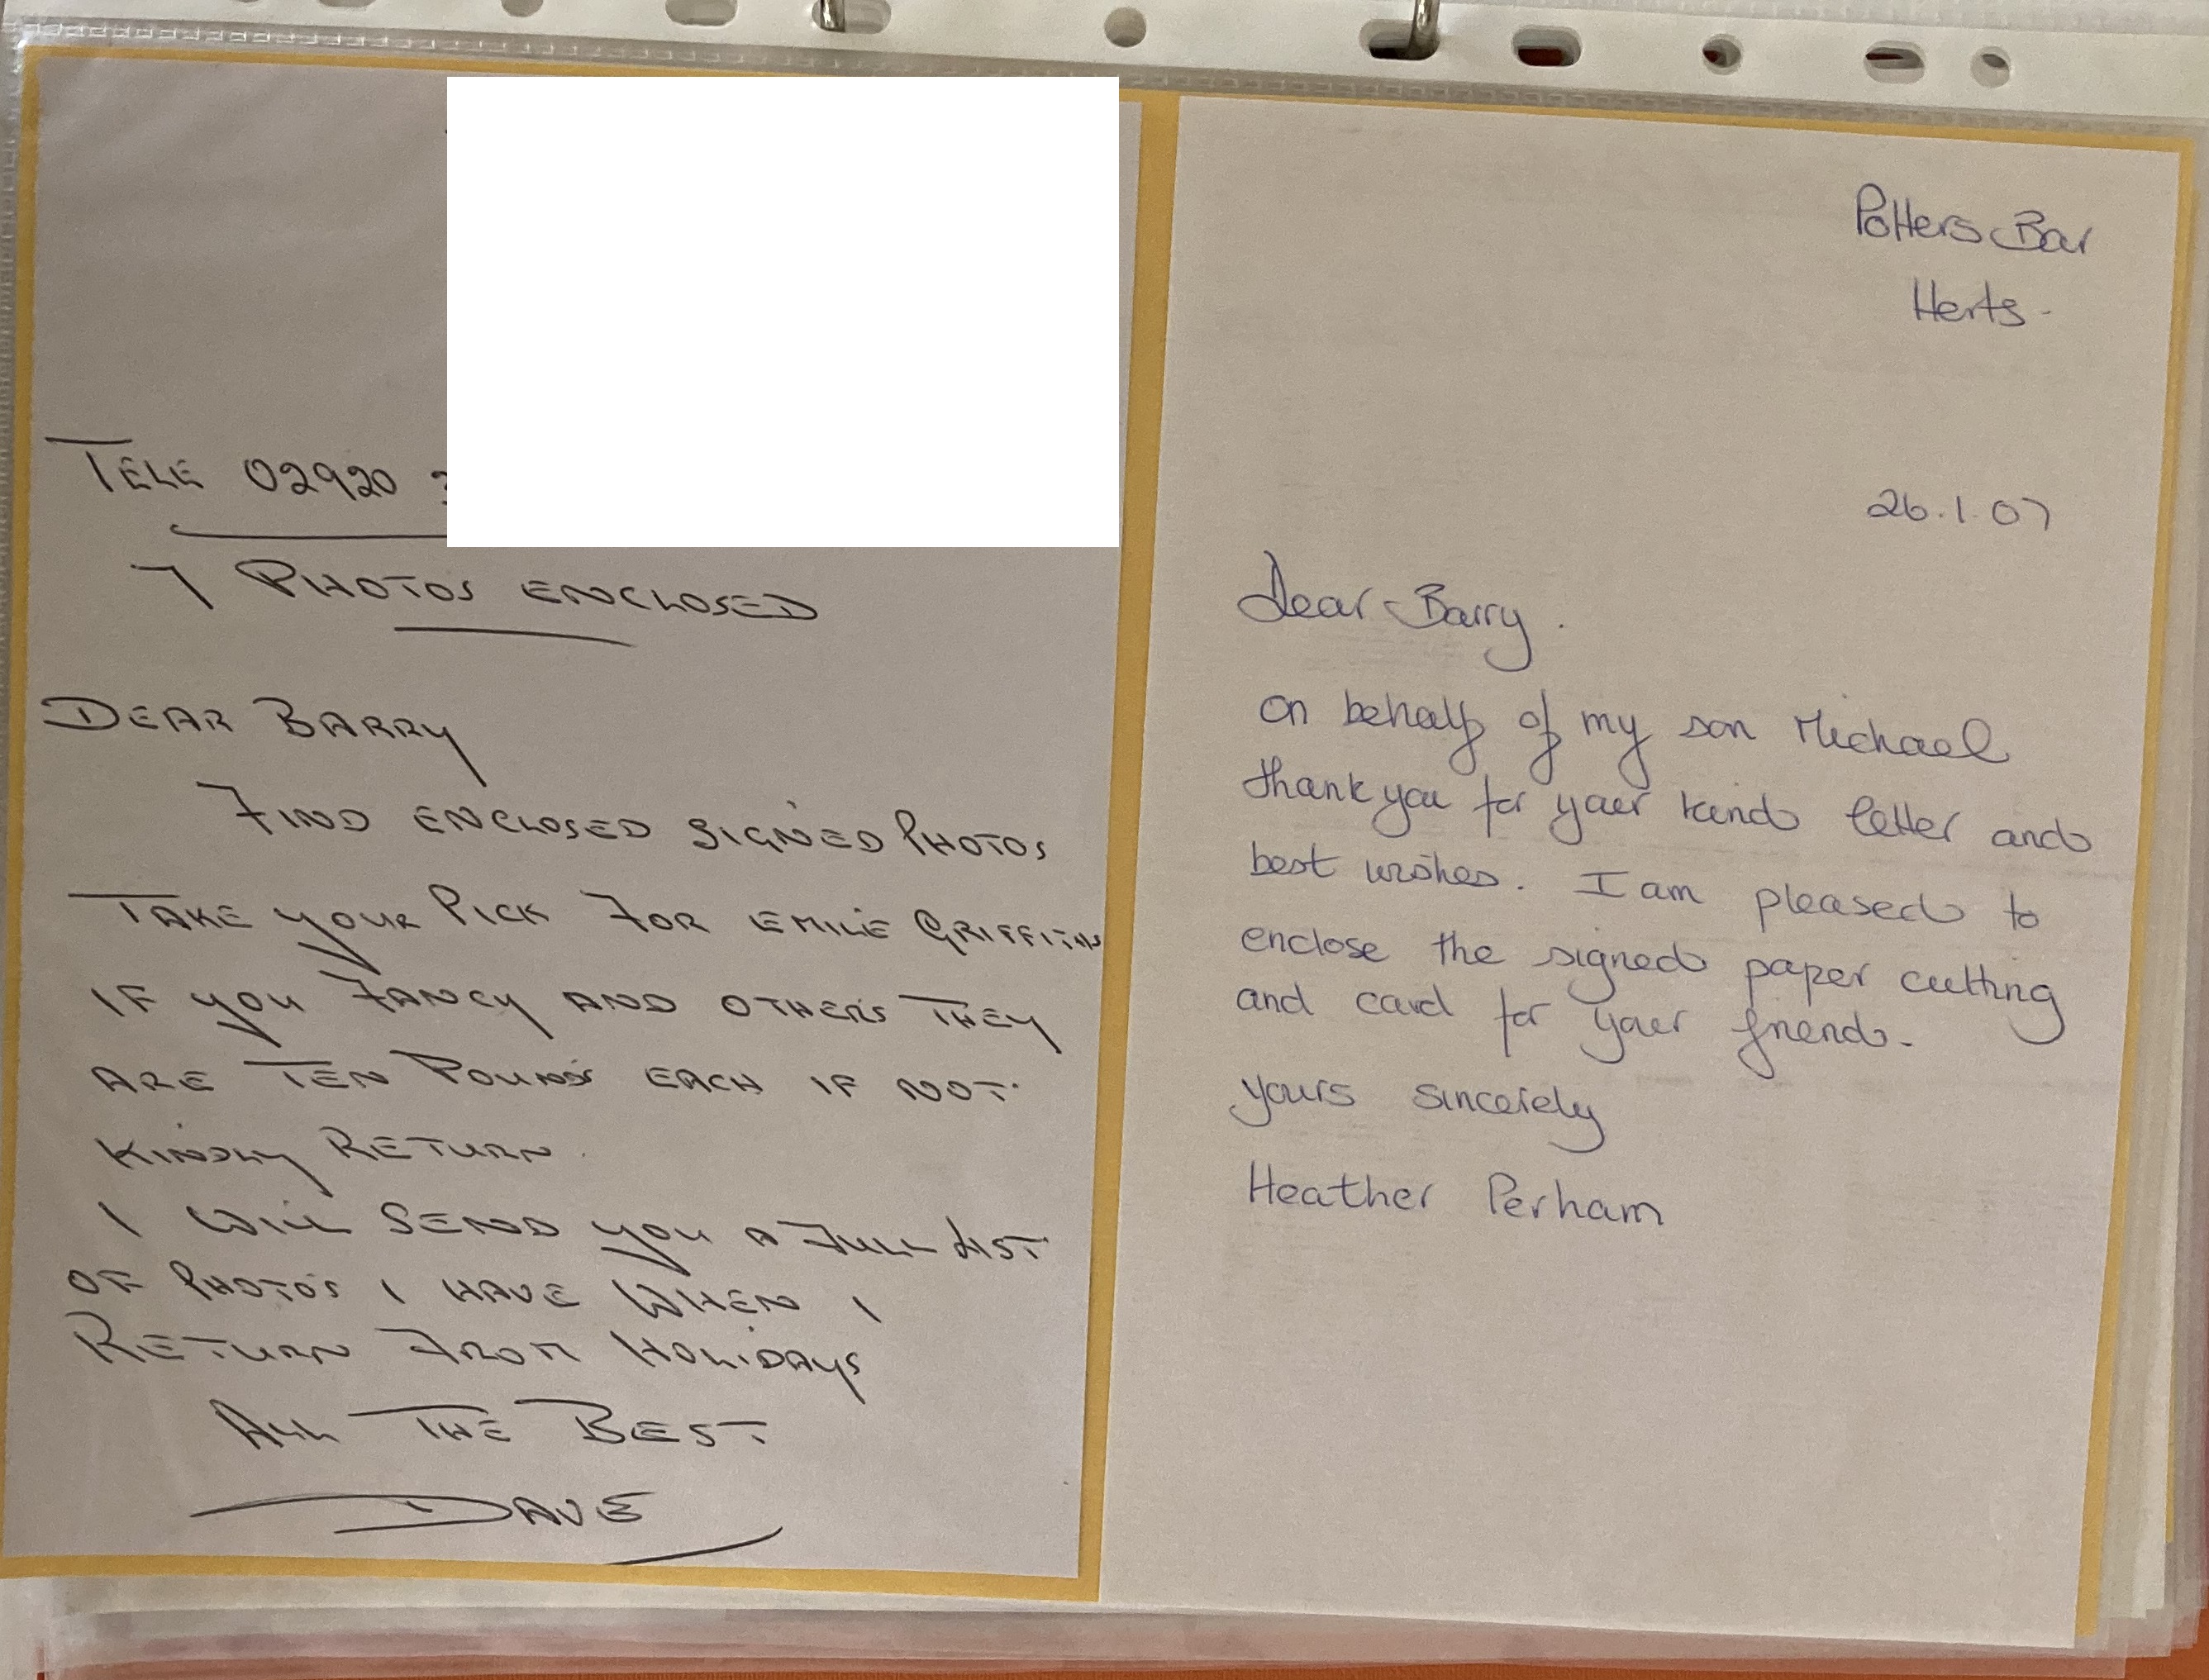 TELE 02920
7 PHOTOS ENCLOSED
DEAR BARRY
FIND ENCLOSED SIGNED PHOTOS
TAKE YOUR PICK FOR EMILE GRIFFITHS
IF YOU FANCY AND OTHERS THEY
ARE TEN POUNDS EACH IF NOT
KINDLY RETURN.
I WILL SEND YOU A FULL LIST
OF PHOTO'S I HAVE WHEN I
RETURN FROM HOLIDAYS
ALL THE BEST
DAVE
Potters Bar
Herts.
26.1.07
Dear Barry.
on behalf of my son Michael
thank you for your kind letter and
best wishes. I am pleased to
enclose the signed paper cutting
and card for your friend.
yours sincerely
Heather Perham